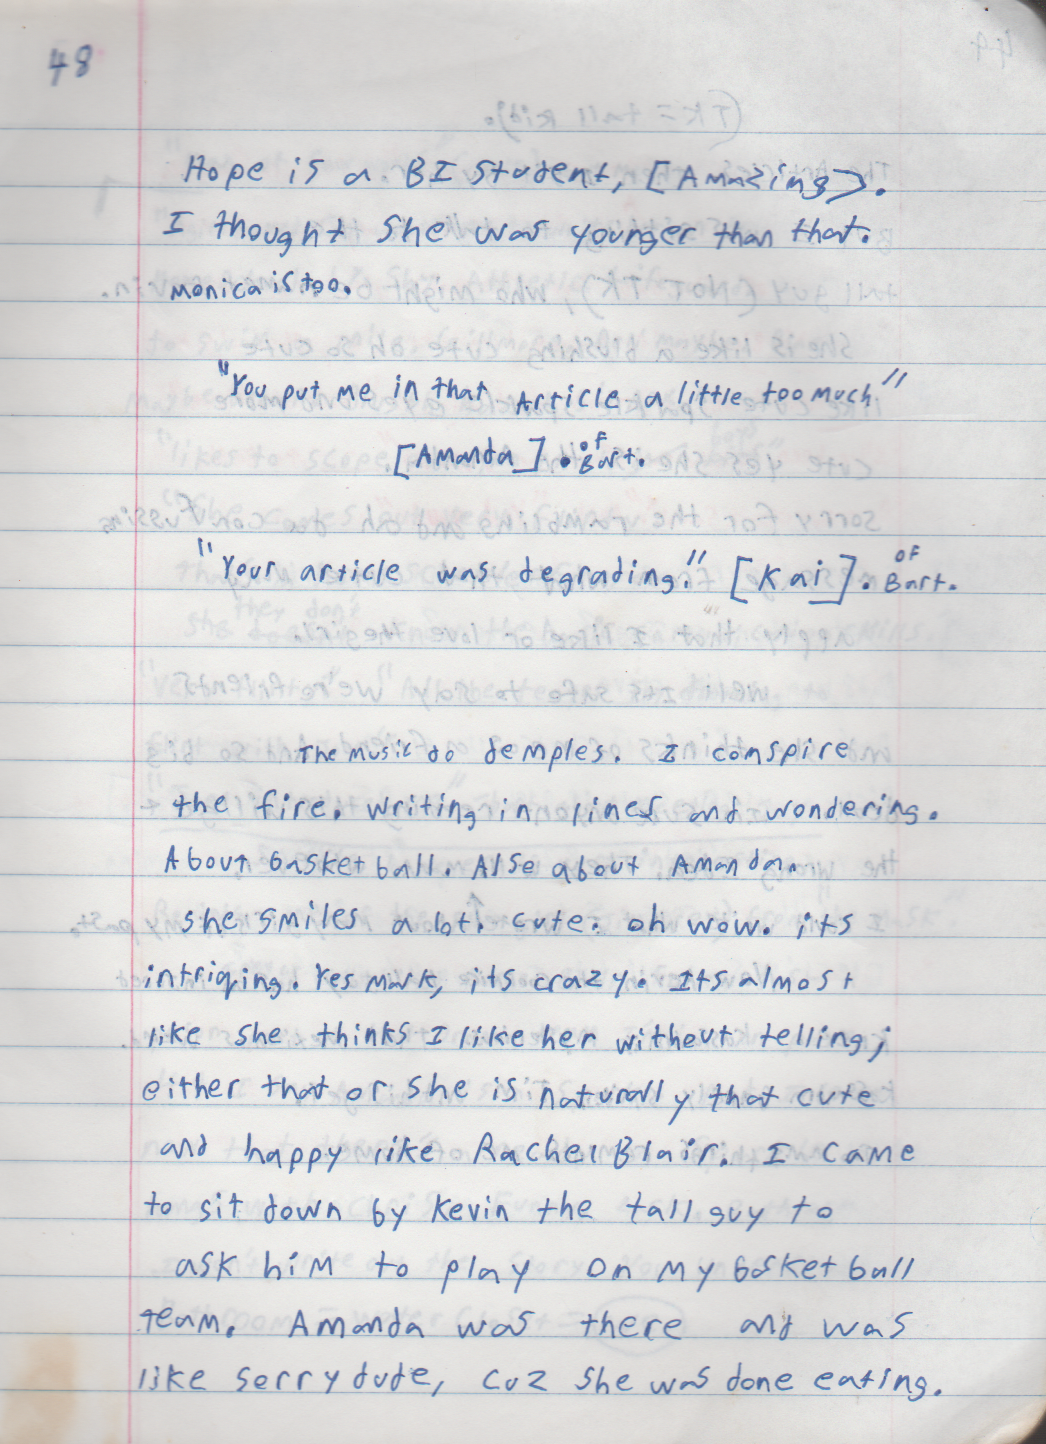 48
Hope is a BI Student, [Amazing].
I thought she was younger than that.
monica is too.
"You put me in that Article a little too much"
[Amanda]. of Bart.
"Your article was degrading." [Kai]. of Bart.
The music do demples. I conspire
the fire. writing in lines and wondering.
About basketball. Also about Amanda.
she smiles a lot. cute. oh wow. its
intriqing. Yes Mark, its crazy. Its almost
like she thinks I like her without telling;
either that or she is naturally that cute
and happy like Rachel Blair. I came
to sit down by Kevin the tall guy to
ask him to play on my basketball
team. Amanda was there and was
like sorry dude, cuz she was done eating.